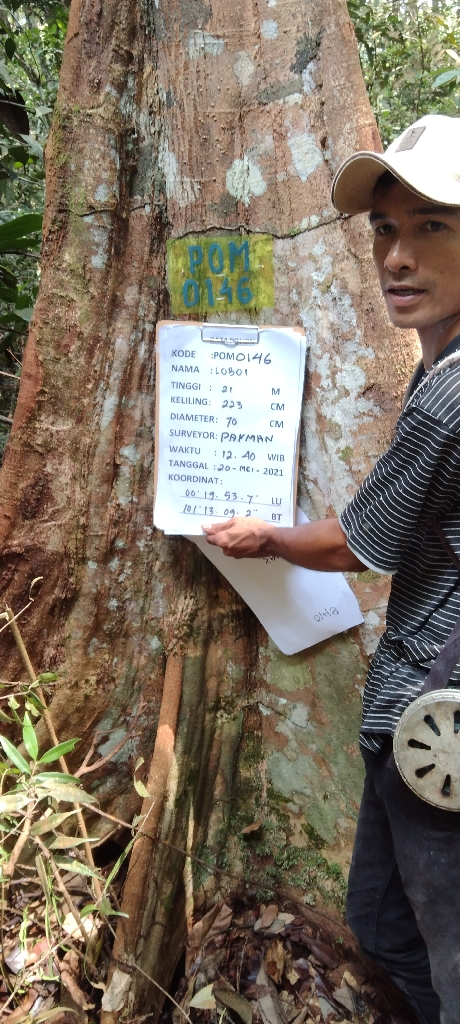 POM
0146
DATA POHON
KODE :POM0146
NAMA :LOBOI
TINGGI : 21 M
KELILING: 223 CM
DIAMETER: 70 CM
SURVEYOR: PAYMAN
WAKTU : 12.40 WIB
TANGGAL :20-MEI-2021
KOORDINAT:
00°19.53.7" LU
101°13.09.2" BT
0148